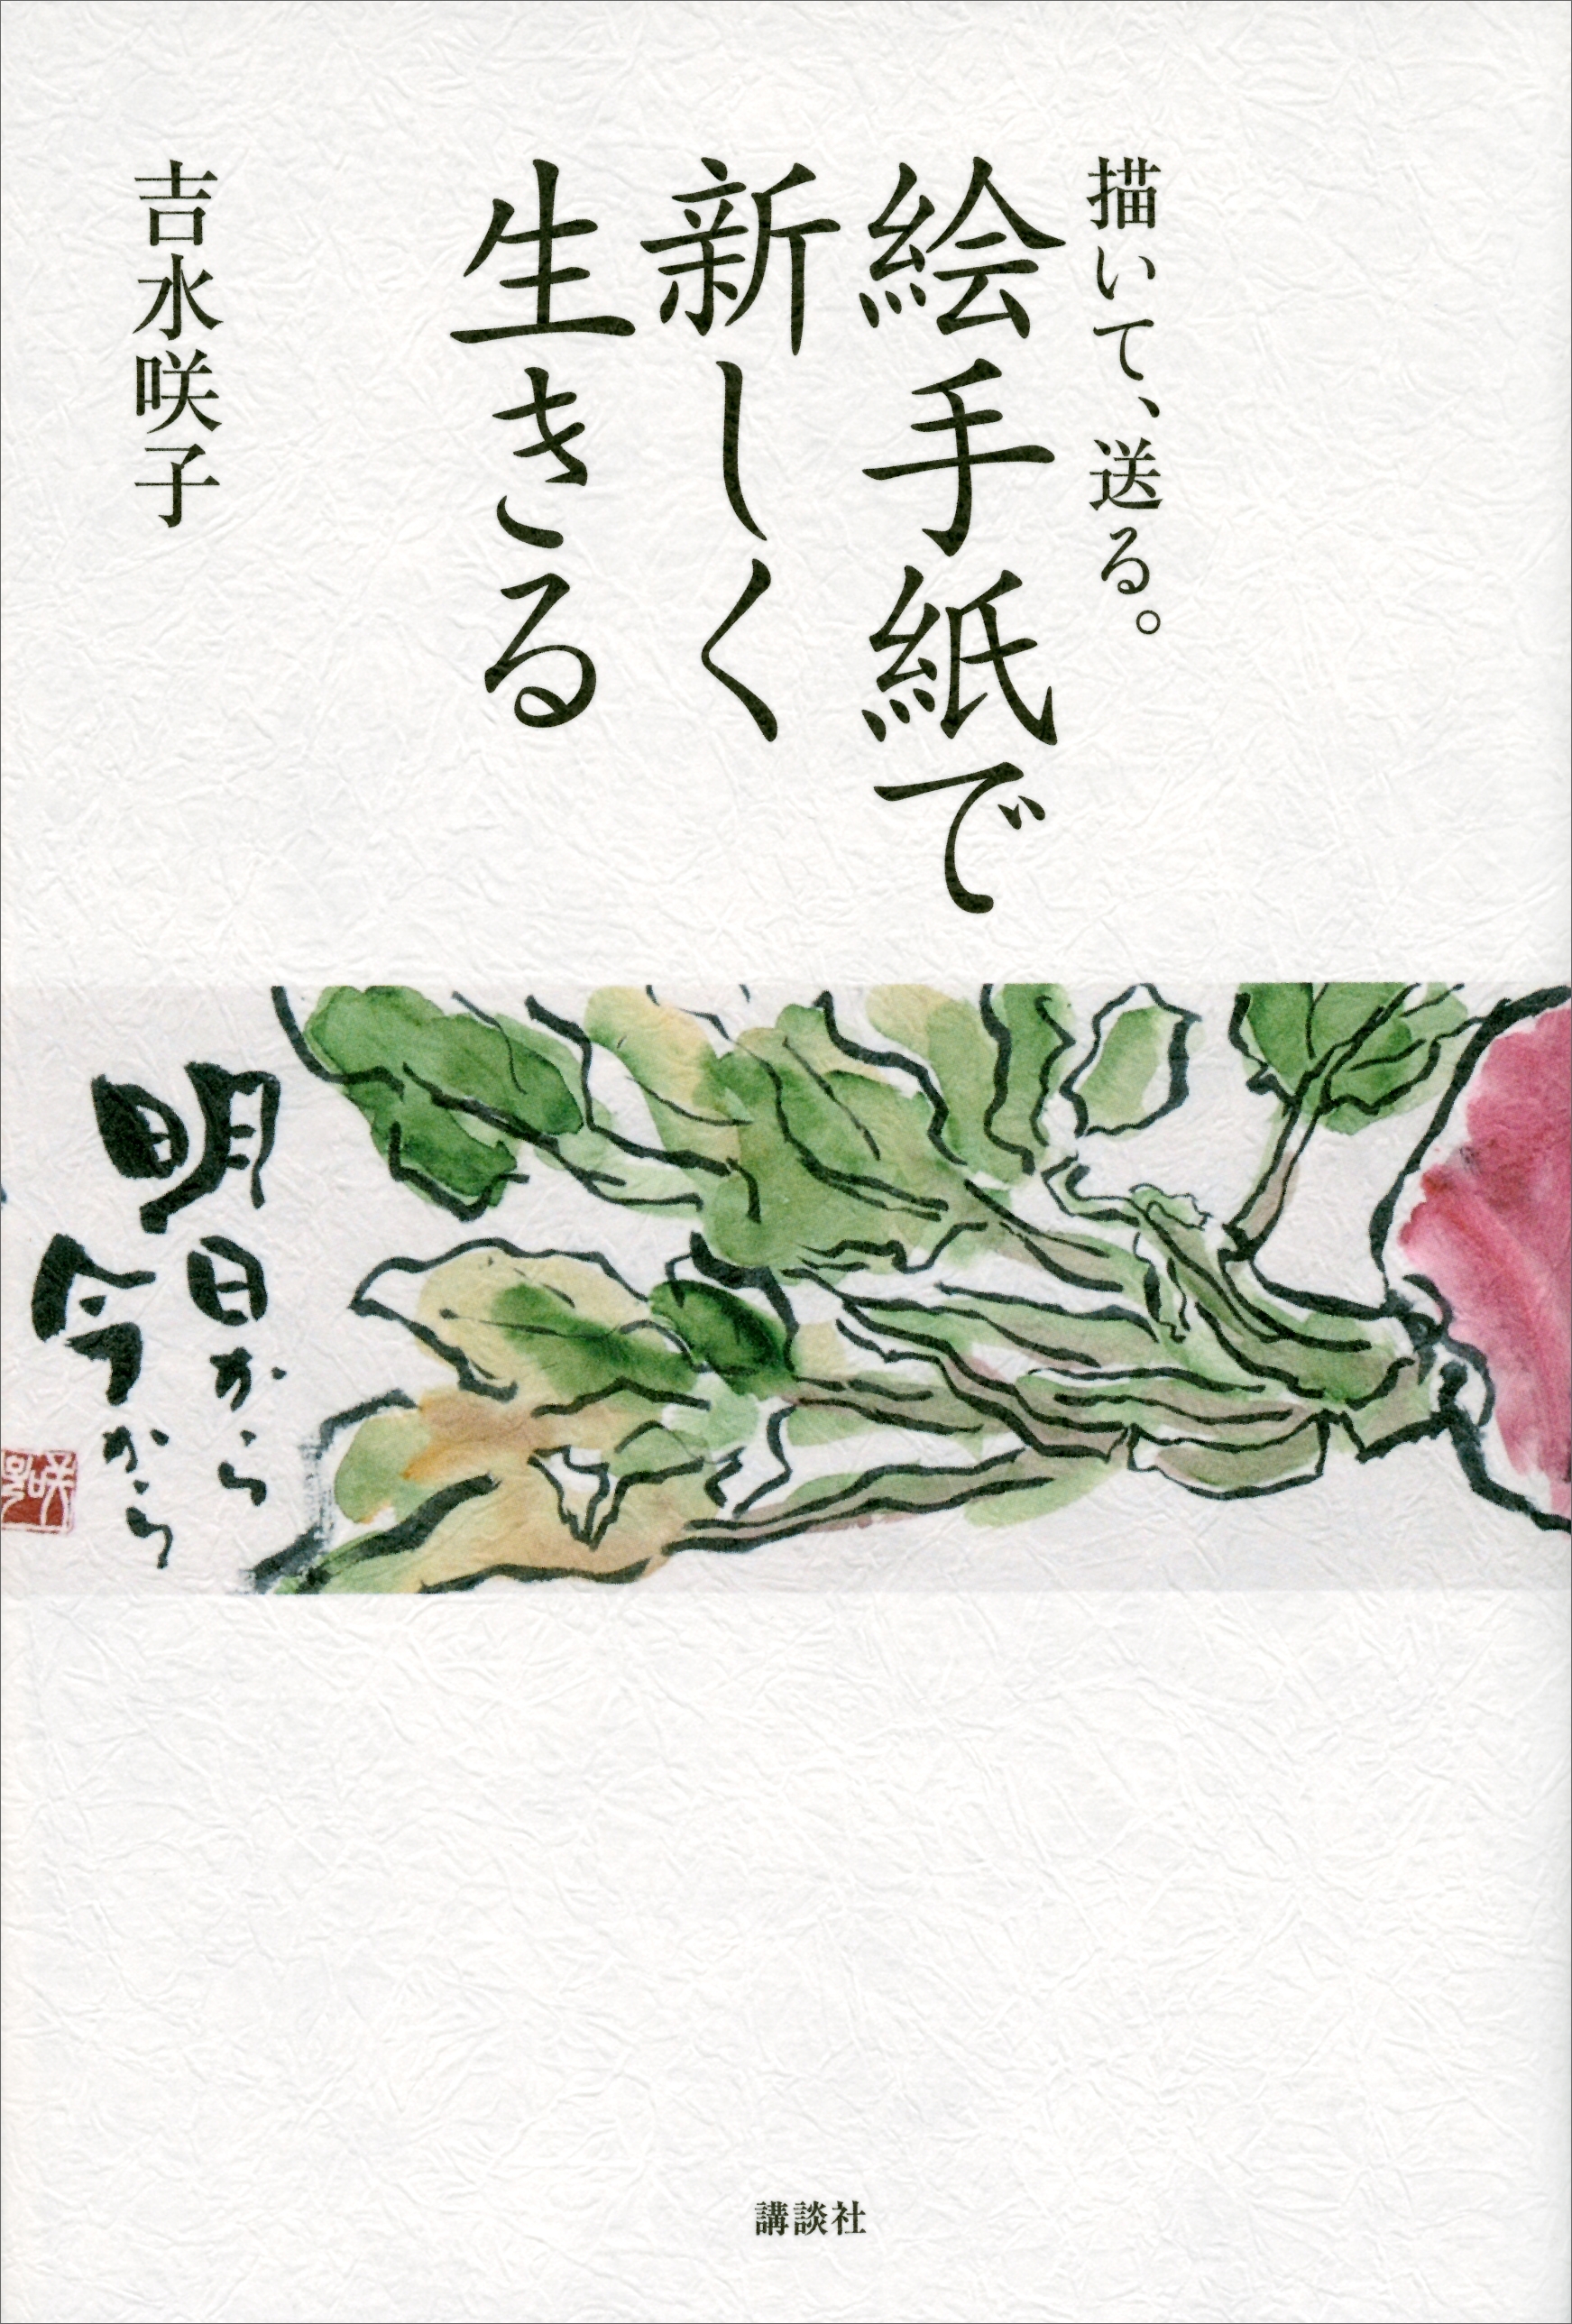 描いて、送る。
絵手紙で
新しく
生きる
吉水咲子
明日から
今から
咲
講談社